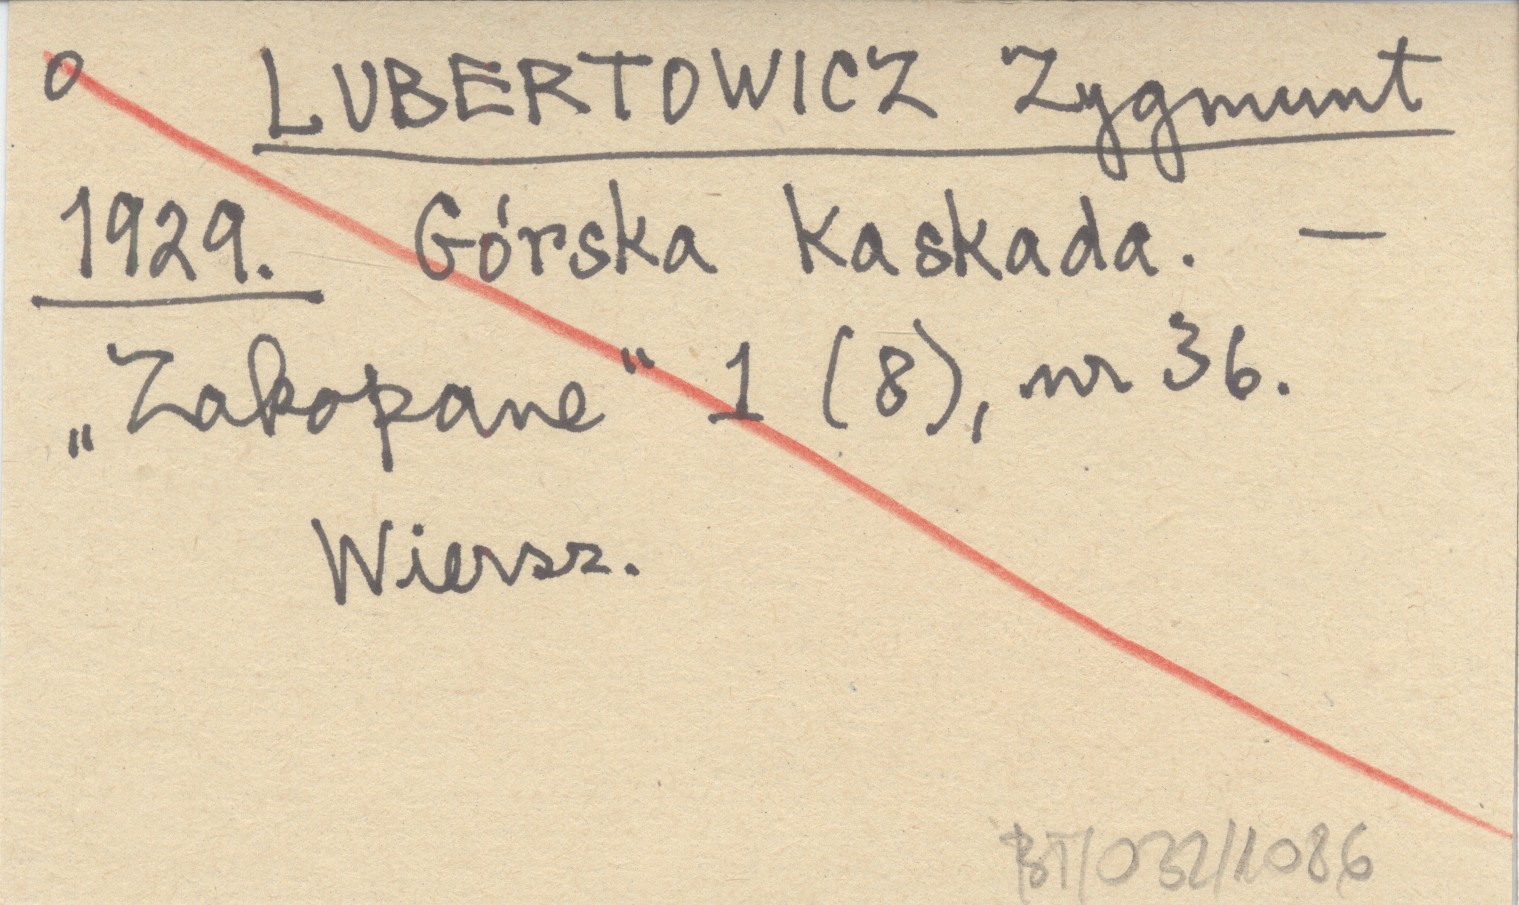 o LUBERTOWICZ Zygmunt
1929. Górska kaskada. —
„Zakopane" 1 (8), nr 36.
Wiersz.
BT/032/1086